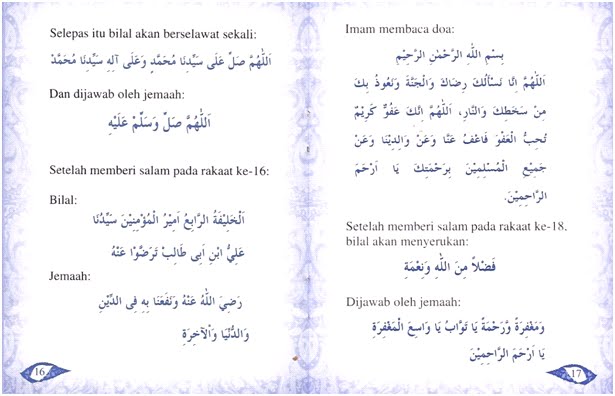 Selepas itu bilal akan berselawat sekali:
اَللّٰهُمَّ صَلِّ عَلَى سَيِّدِنَا مُحَمَّدٍ وَعَلَى آلِهِ سَيِّدِنَا مُحَمَّدْ
Dan dijawab oleh jemaah:
اَللّٰهُمَّ صَلِّ وَسَلِّمْ عَلَيْهِ
Setelah memberi salam pada rakaat ke-16:
Bilal:
اَلْخَلِيْفَةُ الرَّابِعُ اَمِيْرُ الْمُؤْمِنِيْنَ سَيِّدُنَا
عَلِيُّ ابْنِ اَبِى طَالِبْ تَرَضَّوْا عَنْهُ
Jemaah:
رَضِيَ اللهُ عَنْهُ وَنَفَعَنَا بِهِ فِى الدِّيْنِ
وَالدُّنْيَا وَالْآخِرَةِ
16
Imam membaca doa:
بِسْمِ اللهِ الرَّحْمٰنِ الرَّحِيْمِ
اَللّٰهُمَّ اِنَّا نَسْأَلُكَ رِضَاكَ وَالْجَنَّةَ وَنَعُوذُ بِكَ
مِنْ سَخَطِكَ وَالنَّارِ، اَللّٰهُمَّ اِنَّكَ عَفُوٌّ كَرِيْمٌ
تُحِبُّ الْعَفْوَ فَاعْفُ عَنَّا وَعَنْ وَالِدِيْنَا وَعَنْ
جَمِيْعِ الْمُسْلِمِيْنَ بِرَحْمَتِكَ يَا اَرْحَمَ
الرَّاحِمِيْنَ.
Setelah memberi salam pada rakaat ke-18,
bilal akan menyerukan:
فَضْلًا مِنَ اللهِ وَنِعْمَة
Dijawab oleh jemaah:
وَمَغْفِرَةً وَّرَحْمَةً يَا تَوَّابُ يَا وَاسِعَ الْمَغْفِرَةِ
يَا اَرْحَمَ الرَّاحِمِيْنَ
17